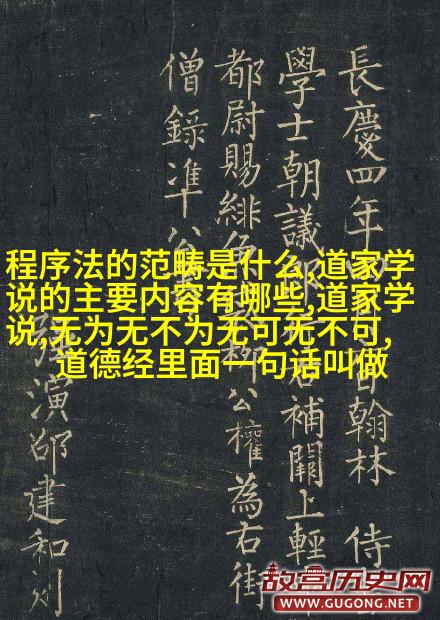 程序法的范畴是什么,道家学
说的主要内容有哪些,道家学
说,无为无不为无可无不可,
道德经里面一句话叫做
長慶四年日翰林侍
學士朝議郎右補闕上輕
都尉賜緋魚柳公權為右街
僧錄准公
强演邵建和刻
故宫历史网
WWW.GUGONG.NET